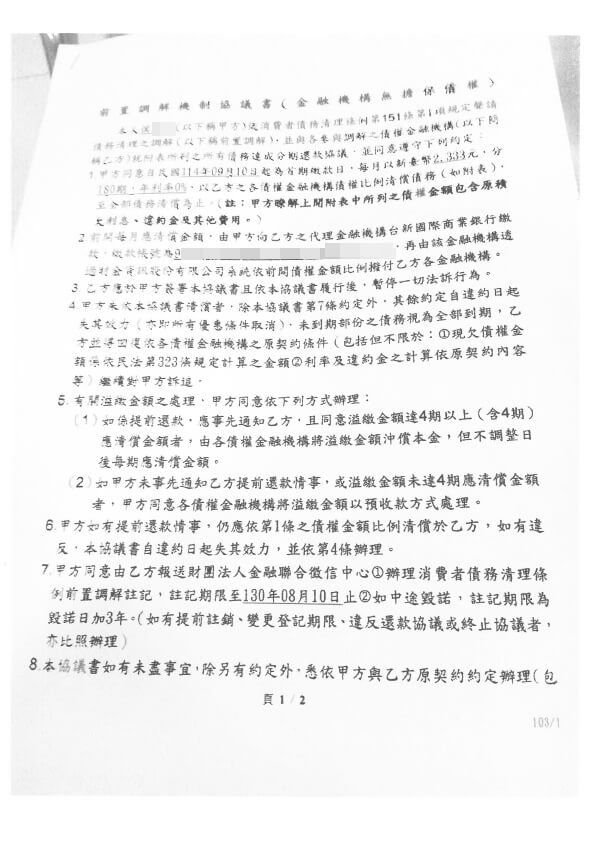 前置調解機制協議書(金融機構無擔保債權)
本人 (以下稱甲方)依消費者債務清理條例第151條第1項規定聲請
債務清理之調解(以下稱前置調解),並與各參與調解之債權金融機構(以下簡
稱乙方)就附表所列之所有債務達成分期還款協議,並同意遵守下列約定:
1.甲方同意自民國114年09月10日起為首期繳款日,每月以新臺幣2,333元,分
180期,年利率0%,以乙方之各債權金融機構債權比例清償債務(如附表),
至全部債務清償為止。(註:甲方瞭解上開附表中所列之債權金額包含原積
欠利息、違約金及其他費用。)
2.前開每月應清償金額,由甲方向乙方之代理金融機構台新國際商業銀行繳
款,繳款帳號為9 ,再由該金融機構透
過財金資訊股份有限公司系統依前開債權金額比例撥付乙方各金融機構。
3.乙方應於甲方簽署本協議書且依本協議書履行後,暫停一切法訴行為。
4.甲方未依本協議書清償者,除本協議書第7條約定外,其餘約定自違約日起
失其效力(亦即所有優惠條件取消),未到期部份之債務視為全部到期,乙
方並得回復依各債權金融機構之原契約條件(包括但不限於:①現欠債權金
額係依民法第323條規定計算之金額②利率及違約金之計算依原契約內容
等)繼續對甲方訴追。
5.有關溢繳金額之處理,甲方同意依下列方式辦理:
(1)如係提前還款,應事先通知乙方,且同意溢繳金額達4期以上(含4期)
應清償金額者,由各債權金融機構將溢繳金額沖償本金,但不調整日
後每期應清償金額。
(2)如甲方未事先通知乙方提前還款情事,或溢繳金額未達4期應清償金額
者,甲方同意各債權金融機構將溢繳金額以預收款方式處理。
6.甲方如有提前還款情事,仍應依第1條之債權金額比例清償於乙方,如有違
反,本協議書自違約日起失其效力,並依第4條辦理。
7.甲方同意由乙方報送財團法人金融聯合徵信中心①辦理消費者債務清理條
例前置調解註記,註記期限至130年08月10日止②如中途毀諾,註記期限為
毀諾日加3年。(如有提前註銷、變更登記期限、違反還款協議或終止協議者,
亦比照辦理)
8.本協議書如有未盡事宜,除另有約定外,悉依甲方與乙方原契約約定辦理(包
頁 1 / 2
103/1